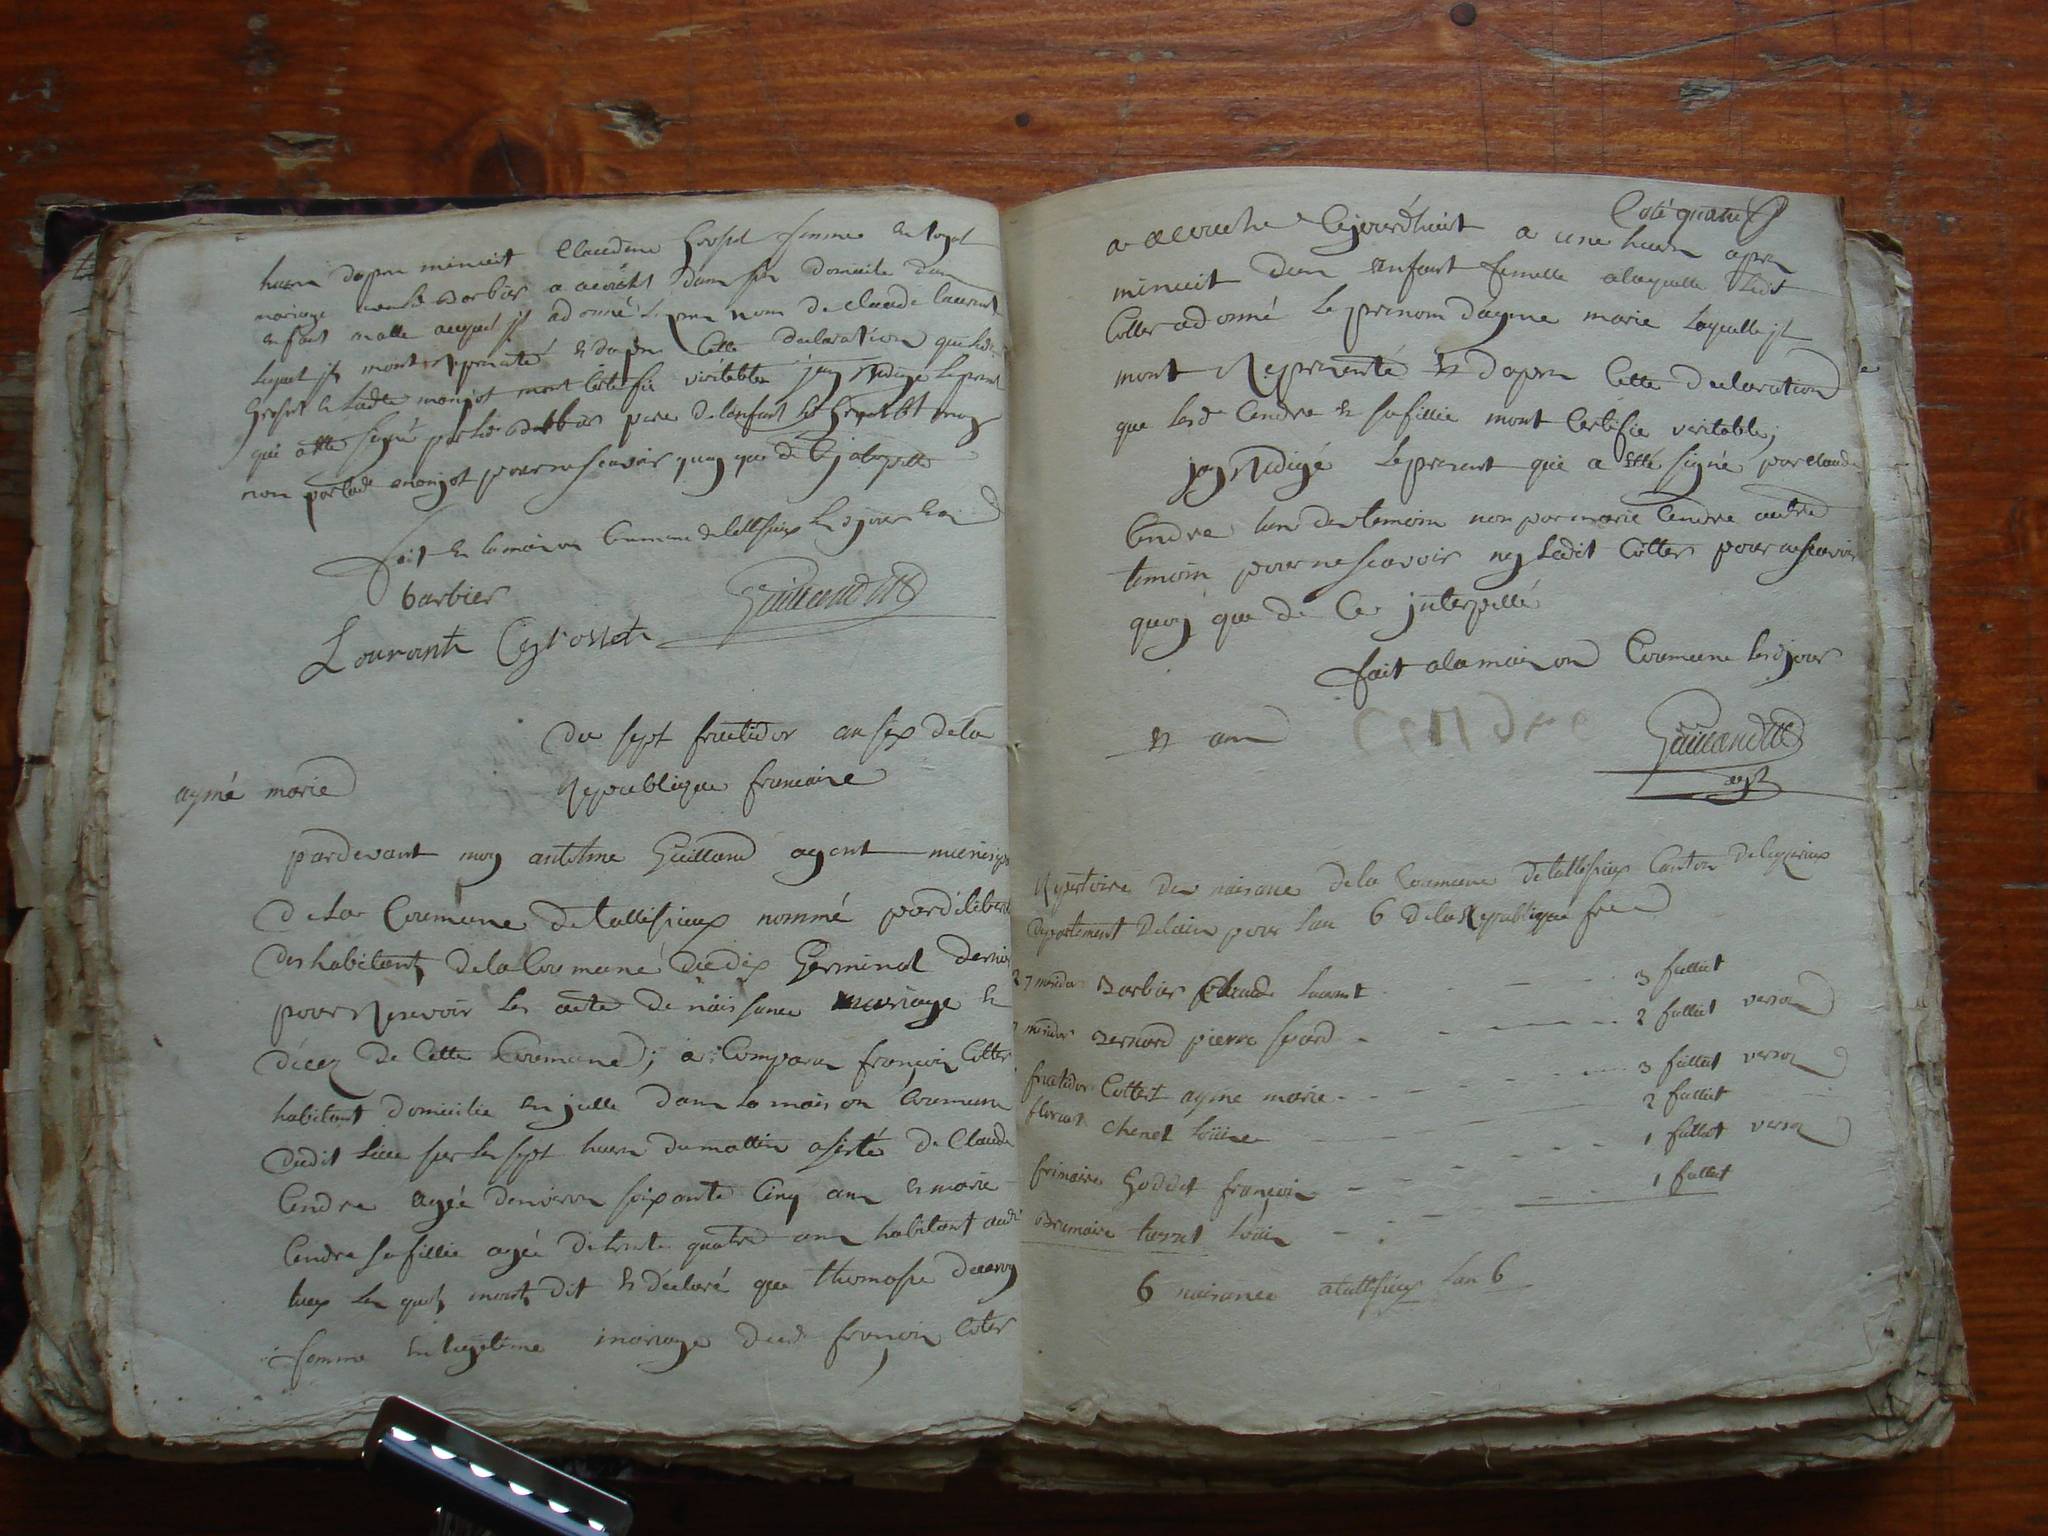 heures dapres minuit Claudine Grosset femme en loyal
mariage dudit Barbier a accouché dans son domicile dun
enfant malle auquel jl a donné le prenom de claude laurent
lequel jl mont représenté et dapres Cette declaration que led
Grosset et ladte monjot mont Certifié véritables jay Redigé le present
qui a été signé par led Barbier pere de lenfant led Grosset et moy
non par lade monjot pour ne scavoir quoy que de ce jnterpellé
Fait en la maison Commune de tallisieux les jour et an
barbier
Lourant Cegrosset Guilland
du sept fructidor an six de la
Republique francaise
aymé marie
pardevant moy antelme Guilland agent municip
de la Coumune de tallisieux nommé par délibera
des habitants de la Coumune du dix Germinal dernier
pour Recevoir les acte de naissance mariage et
décez de Cette Coumune; a Comparu françois Cotter
habitant domicilié en jcelle dans la maison Coumune
dudit lieu sur les sept heures du mattin asisté de Claude
Cendre agée denviron soixante Cinq ans et marie
Cendre sa fillie agée de trente quatre ans habitant audt
lieux les quels mont dit et déclaré que thomasse
femme en legitime mariage dud françois Coter
Coté quatre
a accouché Cejourdhuit a une heure apres
minuit dun enfant femelle alaquelle ledit
Cotter adonné le prenom dayme marie laquelle jl
mont Représenté et dapres Cette declaration
que led Cendre et sa fillie mont Certifié veritable;
jay Redigé le present qui a été signé par claude
Cendre lun des temoins non par marie Cendre autre
temoin pour ne scavoir ny ledit Cotter pour ne scavoir
quoy que de Ce jnterpellé
fait a la maison Coumune led jour
et an Cendre Guilland
agt
Repertoire des naisance de la Coumune de tallisieux Canton de
departement de lain pour lan 6 de la Republique free
27 mesidor Barbier Claude laurent 3 fulliet
mesidor Bernard pierre 2 fulliet verso
fructidor Cottert ayme marie 3 fulliet verso
floreal chenet loüise 2 fulliet
frimaire Goddet françois 1 fulliet verso
Brumaire louis 1 fulliet
6 naisance a tallisieux lan 6